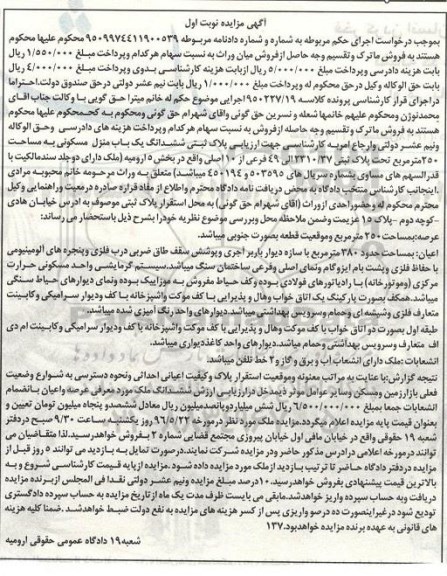 آگهی مزایده نوبت اول
بموجب درخواست اجرای حکم مربوطه به شماره و شماره دادنامه مربوطه ۹۵۰۹۹۷۴۴۱۱۹۰۰۵۳۹ محکوم علیها محکوم
هستند به فروش ماترک و تقسیم وجه حاصل از فروش میان وراث به نسبت سهام هر کدام و پرداخت مبلغ ۱/۵۵۰/۰۰۰ ریال
بابت هزینه دادرسی و پرداخت مبلغ ۵/۰۰۰/۰۰۰ ریال از بابت هزینه کارشناسی بدوی و پرداخت مبلغ ۴/۰۸۰/۰۰۰ ریال
بابت حق الوکاله وکیل در حق محکوم له و پرداخت مبلغ ۱/۰۰۰/۰۰۰ ریال بابت نیم عشر دولتی در حق صندوق دولت. احتراما
در اجرای قرار کارشناسی پرونده کلاسه ۹۵۰۲۲۷/۱۹ اجرایی موضوع حکم له خانم میترا حق گویی با وکالت جناب آقای
محمدنوژن و محکوم علیهم خانمها شعله و نسرین حق گوئی و آقای شهرام حق گوئی و محکوم به که محکوم علیها محکوم
هستند به فروش ماترک و تقسیم وجه حاصله از فروش به نسبت سهام هر کدام و پرداخت هزینه های دادرسی و حق الوکاله
و نیم عشر دولتی و ارجاع امر به کارشناسی جهت ارزیابی پلاک ثبتی ششدانگ یک باب منزل مسکونی به مساحت
۲۵۰ مترمربع تحت پلاک ثبتی ۲۳۱۰/۳۷ الی ۴۹ فرعی از ۱۰ اصلی واقع در بخش ۵ ارومیه (ملک دارای دو جلد سند مالکیت با
قدرالسهم های مساوی بشماره سریال های ۵۰۳۵۹۵ و ۴۵۰۱۹۴ میباشد) متعلق به وراث مرحومه خانم محبوبه مرادی
.اینجانب کارشناس منتخب دادگاه به محض دریافت نامه دادگاه محترم و اطلاع از مفاد قرار صادره در معیت و راهنمایی وکیل
محترم محکوم له و حضور احدی از وراث (آقای شهرام حق گوئی) به محل استقرار پلاک ثبتی موصوف به آدرس خیابان هادی
-کوچه دوم -پلاک ۱۵ عزیمت و ضمن ملاحظه محل و بررسی موضوع نظریه خود را بشرح ذیل باستحضار می رساند:
عرصه: بمساحت ۲۵۰ مترمربع و موقعیت قطعه بصورت جنوبی میباشد.
اعیان: بمساحت حدود ۳۸۰ مترمربع با سازه دیوار باربر آجری و پوشش سقف طاق ضربی درب فلزی و پنجره های آلومینیومی
با حفاظ فلزی و پشت بام ایزوگام و نمای اصلی و فرعی ساختمان سنگ میباشد. سیستم گرمایشی واحد مسکونی حرارت
مرکزی (موتورخانه) با رادیاتورهای فولادی بوده و کف حیاط مفروش به موزاییک بوده و نمای دیوارهای حیاط سنگی
میباشد. همکف بصورت پارکینگ یک اتاق خواب و هال و پذیرایی با کف موکت و آشپزخانه با کف و دیوار سرامیکی و کابینت
متعارف فلزی و شیشه ای و حمام و سرویس بهداشتی میباشد. دیوارهای واحد رنگ آمیزی شده میباشد.
طبقه اول بصورت دو اتاق خواب با کف موکت و هال و پذیرایی با کف موکت و آشپزخانه با کف و دیوار سرامیکی و کابینت ام دی
اف متعارف و سرویس بهداشتی و حمام میباشد. دیوارهای واحد کاغذ دیواری میباشد.
انشعابات :ملک دارای انشعاب آب و برق و گاز و ۲ خط تلفن میباشد.
نتیجه گزارش: با عنایت به مراتب معنونه و موقعیت استقرار پلاک و کیفیت اعیانی احداثی و نحوه دسترسی به شوارع و وضعیت
فعلی بازار زمین و مسکن و سایر عوامل موثر ذیمدخل در ارزیابی ارزش ششدانگ ملک مورد معرفی عرصه و اعیان بانضمام
انشعابات جمعا بمبلغ ۶/۵۰۰/۰۰۰/۰۰۰ ریال شش میلیارد و پانصد میلیون ریال معادل ششصد و پنجاه میلیون تومان تعیین و
بعنوان قیمت پایه مزایده اعلام میگردد. مزایده ملک مورد نظر در مورخه ۹۶/۵/۲۲ روز یکشنبه ساعت ۹/۳۰ صبح در دفتر
شعبه ۱۹ حقوقی واقع در خیابان مافی اول خیابان پیروزی مجتمع قضایی شماره ۲ بفروش خواهد رسید. لذا متقاضیان می
توانند در مورخه اعلامی در آدرس مذکور حاضر و در مزایده شرکت نمایند. در صورت تمایل به بازدید می توانند ۵ روز قبل از
مزایده در دفتر دادگاه حاضر تا ترتیب بازدید از ملک مورد مزایده داده شود. مزایده از پایه قیمت کارشناسی شروع و به
بالاترین قیمت پیشنهادی بفروش خواهد رسید. ۱۰ درصد مبلغ مزایده و نیم عشر دولتی نقدا فی المجلس از برنده مزایده
دریافت و به حساب سپرده واریز خواهد شد. مابقی می بایست ظرف مدت یک ماه از تاریخ مزایده به حساب سپرده دادگستری
تودیع شود در غیر اینصورت ده درصد واریزی پس از کسر هزینه های مزایده به نفع دولت ضبط خواهد شد. ضمنا کلیه هزینه
های قانونی به عهده برنده مزایده خواهد بود. ۱۳۷
شعبه ۱۹ دادگاه عمومی حقوقی ارومیه